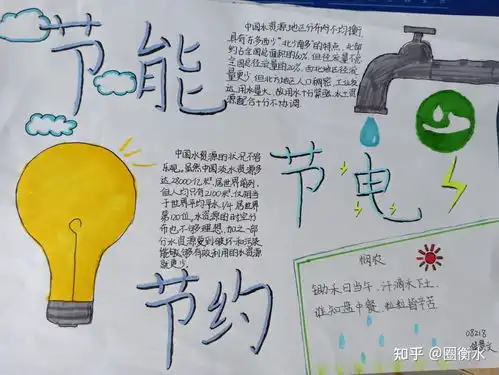 节能
中国水资源地区分布两不均衡,
具有东多西少"北少南多"的特点,北部
约占全国总面积的60%,但径流量不足
全国总径流量的20%,西北地区径流
量更少,但北方地区人口稠密,工业发
达,用水量大,故用水十分紧张,水土资
源配合十分不协调。
中国水资源的状况不容
乐观。虽然中国淡水资源多
达28000亿米³,居世界前列,
但人均只有2100米³,仅相当
于世界平均水平1/4,居世界
第120位。水资源的时空分
布也不够理想,加之一部
分水资源受到破坏和污染
能够有效利用的水资源
就更少
节电
节约
悯农
锄禾日当午,汗滴禾下土,
谁知盘中餐,粒粒皆辛苦
08218
知乎 @圈衡水